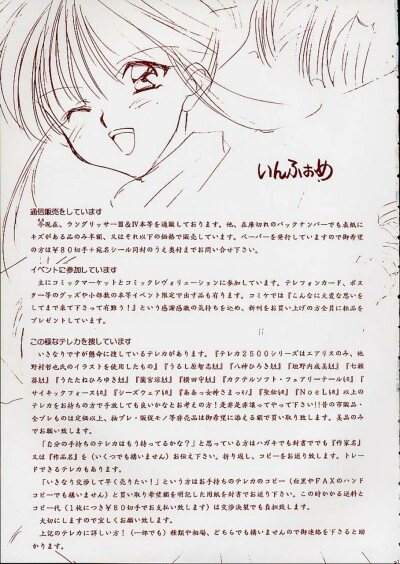 いんふぉめ
通信販売をしています
今現在、ラングリッサーⅢ&Ⅳ本等を通販しております。他、在庫切れのバックナンバーでも表紙に
キズがある品のみ半額、又はそれ以下の価格で販売しています。ペーパーを発行していますので御希望
の方は¥80切手+宛名シール同封のうえ奥村までお問い合せ下さい。
イベントに参加しています
主にコミックマーケットとコミックレヴォリューションに参加しています。テレフォンカード、ポ
スター等のグッズや小部数の本等イベント限定で出す品も有ります。コミケでは『こんなに大変な思いを
してまで来て下さって有難う!』という感謝感激の気持ちを込め、新刊をお買い上げの方全員に粗品を
プレゼントしています。
この様なテレカを捜しています
いきなりですが懸命に捜しているテレカがあります。『テレカ2500シリーズはエアリスのみ、他
野村哲也氏のイラストを使用したもの』『うるし原智志
』『八神ひろき
』『池野内成美
』『七瀬葵
』『うたたねひろゆき
』『蘭宮涼
』『横田守
』『カクテルソフト・フェアリーテール
』『
サイキックフォース
』『シーズウェア
』『ああっ女神さまっ
』『聖伝
』『NoëL
』以上の
テレカをお持ちの方で手放しても良いかなとお考えの方!是非是非譲ってやって下さい!!昔の市販品・
全プレものは定価以上、抽プレ・販促モノ等非売品は御希望に添える額で買い取り致します。美品のみ
でお願い致します。
「自分の手持ちのテレカはもう持ってるかな?」と思っている方はハガキでも封書ででも『作家名』
又は『作品名』を(いくつでも構いません)お伝え下さい。折り返し、コピーをお送り致します。トレー
ドできるテレカもあります。
「いきなり交渉して早く売りたい!」という方はお手持ちのテレカのコピー(白黒やFAXのハンド
コピーでも構いません)と買い取り希望額を明記した用紙を封書でお送り下さい。この時かかる送料と
コピー代(1枚につき¥80切手でお支払い致します)は交渉決裂でも負担致します。
大切にしますので宜しくお願い致します。
上記のテレカに詳しい方!(一部でも)種類や相場、どちらでも構いませんので御連絡を下さると助
かります。